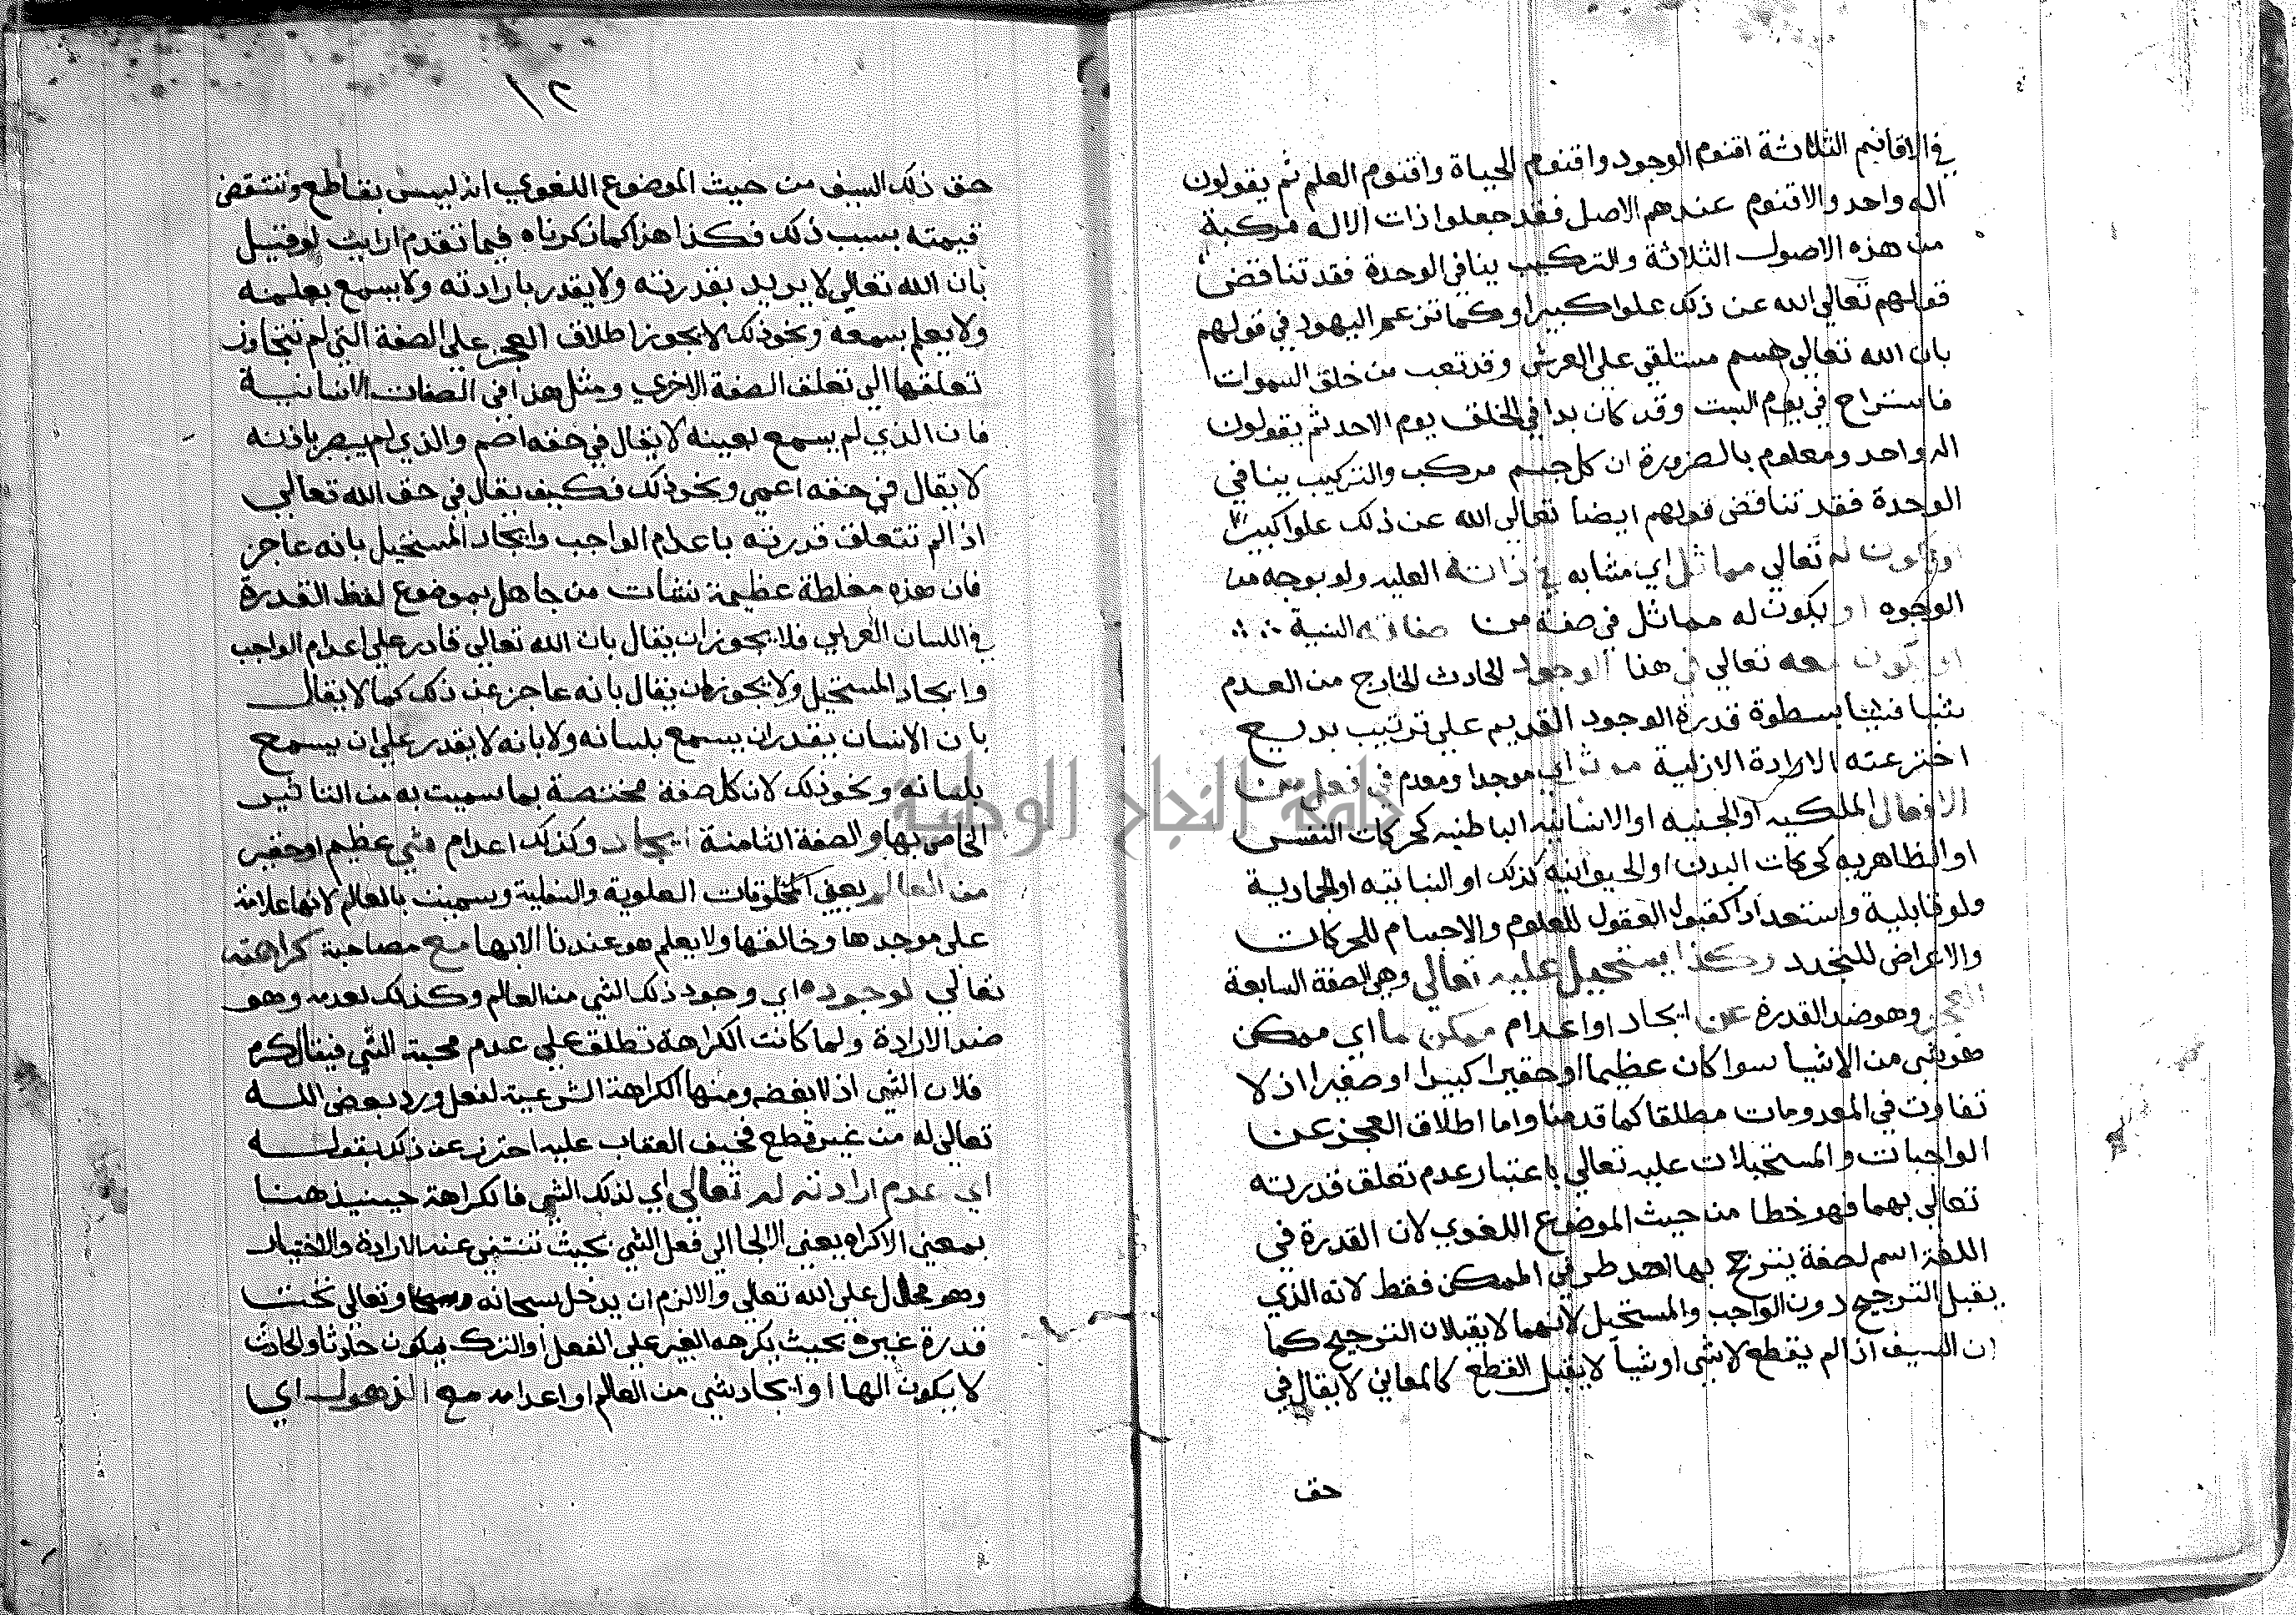 في الاقانيم الثلاثة اقنوم الوجود واقنوم الحياة واقنوم العلم ثم يقولون
اله واحد والاقنوم عندهم الاصل فقد جعلوا ذات الاله مركبة
من هذه الاصول الثلاثة والتركيب ينافي الوحدة فقد تناقض
قولهم تعالي الله عن ذلك علوا كبيرا وكما تزعم اليهود في قولهم
بان الله تعالي جسم مستلقي علي العرش وقد تعب من خلق السموات
فاستراح في يوم السبت وقد كان بدا في الخلق يوم الاحد ثم يقولون
اله واحد ومعلوم بالضرورة ان كل جسم مركب والتركيب ينافي
الوحدة فقد تناقض قولهم ايضا تعالي الله عن ذلك علوا كبيرا
او يكون له تعالي مماثل اي مشابه في ذاته العليه ولو بوجه من
الوجوه او يكون له مماثل في صفة من صفاته السنية
او يكون معه تعالي في هنا الوجود الحادث الخارج من العدم
شيا فشيا بسطوة قدرة الوجود القديم علي ترتيب بديع
اخترعته الارادة الازلية موثر اي موجدا ومعدم في فعل من
الافعال الملكيه او الجنيه او الانسانيه الباطنيه كحركات النفس
او الظاهريه كحركات البدن او الحيوانيه كذلك او النباتيه او الجمادية
ولو قابلية واستعدادا كقبول العقول للعلوم والاجسام للحركات
والاعراض للتجدد وكذا يستحيل عليه تعالي وهي الصفة السابعة
العجز وهو ضد القدرة عن ايجاد او اعدام ممكن ما اي ممكن
هو شي من الاشيا سوا كان عظيما او حقيرا كبيرا او صغيرا اذ لا
تفاوت في المعدومات مطلقا كما قدمنا واما اطلاق العجز عن
الواجبات والمستحيلات عليه تعالي باعتبار عدم تعلق قدرته
تعالي بهما فهو خطا من حيث الموضوع اللغوي لان القدرة في
اللغة اسم لصفة يترجح بها احد طرفي الممكن فقط لانه الذي
يقبل الترجيح دون الواجب والمستحيل لانهما لا يقبلان الترجيح كما
ان السيف اذا لم يقطع لا شي او شيا لا يقبل القطع كالمعاني لا يقال في
حق
١٢
حق ذلك السيف من حيث الموضوع اللغوي انه ليس بقاطع وتنتقض
قيمته بسبب ذلك فكذا هذا كما ذكرناه فيما تقدم ارايت لو قيل
بان الله تعالي لا يريد بقدرته ولا يقدر بارادته ولا يسمع بعلمه
ولا يعلم بسمعه ونحو ذلك لا يجوز اطلاق العجز علي الصفة التي لم تتجاوز
تعلقها الي تعلق الصفة الاخري ومثل هذا في الصفات الانسانية
فان الذي لم يسمع بعينه لا يقال في حقه اصم والذي لم يبصر باذنه
لا يقال في حقه اعمي ونحو ذلك فكيف يقال في حق الله تعالي
اذا لم تتعلق قدرته باعدام الواجب وايجاد المستحيل بانه عاجز
فان هذه مغلطة عظيمة نشات من جاهل بموضوع لفظ القدرة
في اللسان العربي فلا يجوز ان يقال بان الله تعالي قادر علي اعدام الواجب
وايجاد المستحيل ولا يجوز ان يقال بانه عاجز عن ذلك كما لا يقال
بان الانسان يقدر ان يسمع بلسانه ولا بانه لا يقدر علي ان يسمع
بلسانه ونحو ذلك لان كل صفة مختصة بما سميت به من التاثير
الخاص بها والصفة الثامنة ايجاد وكذلك اعدام شي عظيم او حقير
من العالم يعني المخلوقات العلوية والسفلية وسميت بالعالم لانها علامة
علي موجدها وخالقها ولا يعلم هو عندنا الا بها مع مصاحبة كراهته
تعالي لوجوده اي وجود ذلك الشي من العالم وكذلك لعدمه وهو
ضد الارادة ولما كانت الكراهة تطلق علي عدم محبة الشي فيقال كره
فلان الشي اذا ابغضه ومنها الكراهة الشرعية لفعل ورد بعض الله
تعالي له من غير قطع فخيف العقاب عليه احترز عن ذلك بقوله
اي عدم ارادته له تعالي اي لذلك الشي فالكراهة حينيذ هنا
بمعني الاكراه يعني الالجا الي فعل الشي بحيث تنتفي عنه الارادة والاختيار
وهو محال علي الله تعالي والا لزم ان يدخل سبحانه وتعالي تحت
قدرة غيره بحيث يكرهه الغير علي الفعل او الترك فيكون حادثا والحادث
لا يكون الها او ايجاد شي من العالم او اعدامه مع الذهول اي